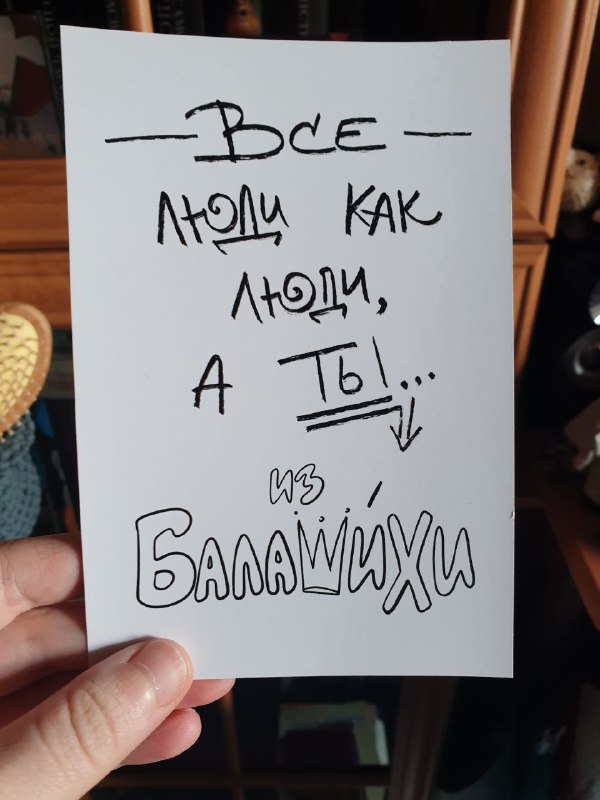 — ВСЕ —
ЛЮДИ КАК
ЛЮДИ,
А ТЫ...
ИЗ
БАЛАШИ́ХИ